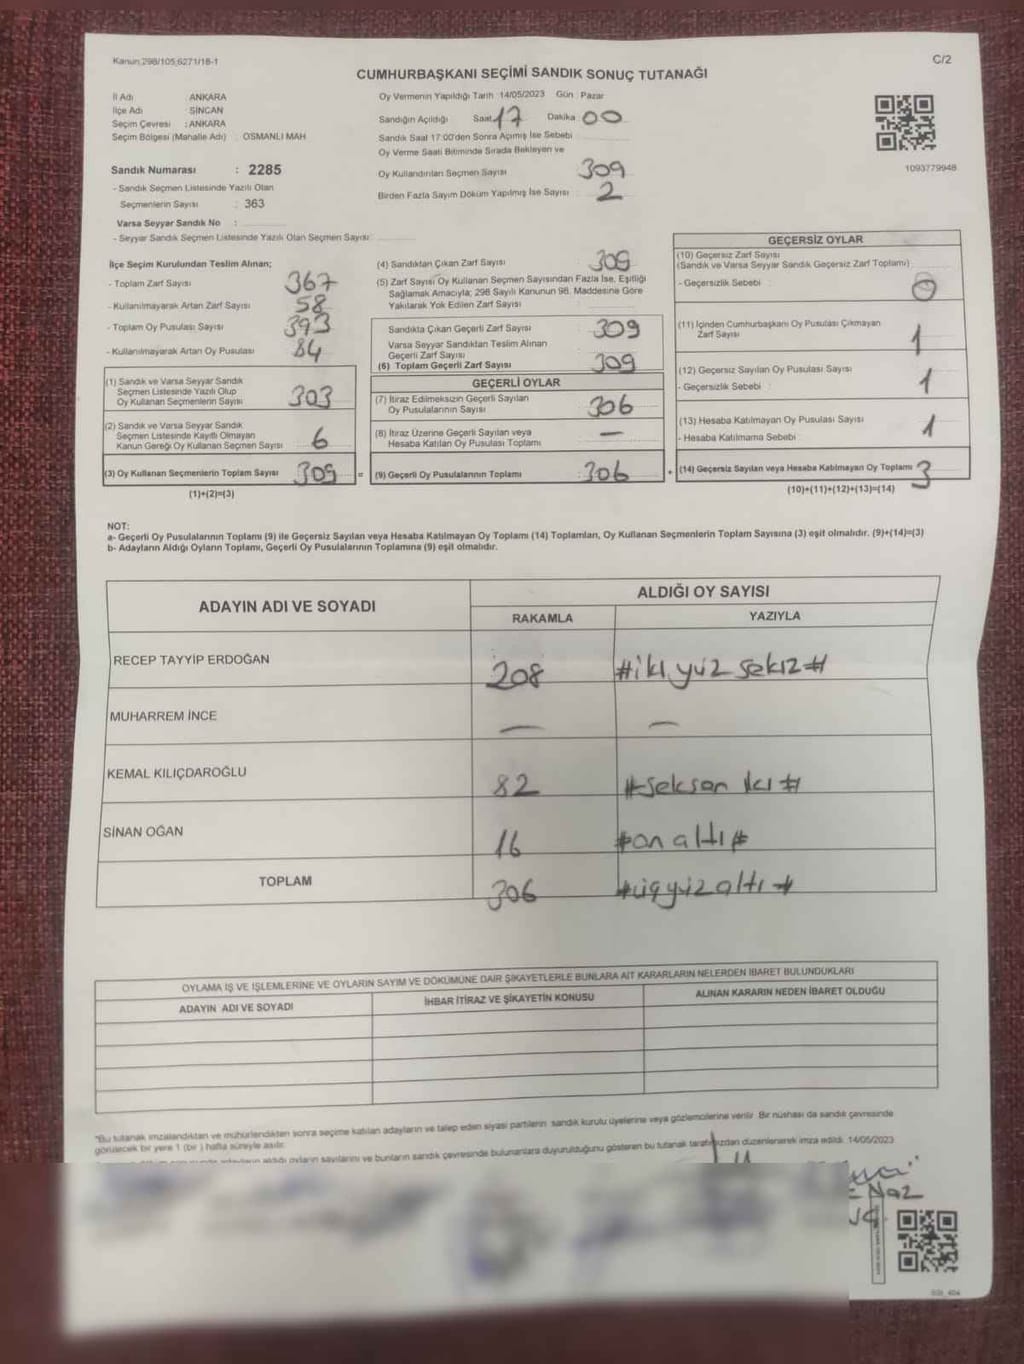 Kanun:298/105,6271/18-1
C/2
CUMHURBAŞKANI SEÇİMİ SANDIK SONUÇ TUTANAĞI
İl Adı : ANKARA
İlçe Adı : SİNCAN
Seçim Çevresi : ANKARA
Seçim Bölgesi (Mahalle Adı) : OSMANLI MAH
Oy Vermenin Yapıldığı Tarih :14/05/2023 Gün : Pazar
Sandığın Açıldığı Saat 17 Dakika 00
Sandık Saat 17:00'den Sonra Açılmış İse Sebebi
Oy Verme Saati Bitiminde Sırada Bekleyen ve
Oy Kullandırılan Seçmen Sayısı 309
Birden Fazla Sayım Döküm Yapılmış İse Sayısı 2
1093779948
Sandık Numarası : 2285
- Sandık Seçmen Listesinde Yazılı Olan
Seçmenlerin Sayısı : 363
Varsa Seyyar Sandık No :
- Seyyar Sandık Seçmen Listesinde Yazılı Olan Seçmen Sayısı:
İlçe Seçim Kurulundan Teslim Alınan;
- Toplam Zarf Sayısı 367
- Kullanılmayarak Artan Zarf Sayısı 58
- Toplam Oy Pusulası Sayısı 393
- Kullanılmayarak Artan Oy Pusulası 84
(1) Sandık ve Varsa Seyyar Sandık
Seçmen Listesinde Yazılı Olup
Oy Kullanan Seçmenlerin Sayısı 303
(2) Sandık ve Varsa Seyyar Sandık
Seçmen Listesinde Kayıtlı Olmayan
Kanun Gereği Oy Kullanan Seçmen Sayısı 6
(3) Oy Kullanan Seçmenlerin Toplam Sayısı 309 =
(1)+(2)=(3)
(4) Sandıktan Çıkan Zarf Sayısı 309
(5) Zarf Sayısı Oy Kullanan Seçmen Sayısından Fazla İse, Eşitliği
Sağlamak Amacıyla; 298 Sayılı Kanunun 98. Maddesine Göre
Yakılarak Yok Edilen Zarf Sayısı
Sandıkta Çıkan Geçerli Zarf Sayısı 309
Varsa Seyyar Sandıktan Teslim Alınan
Geçerli Zarf Sayısı
(6) Toplam Geçerli Zarf Sayısı 309
GEÇERLİ OYLAR
(7) İtiraz Edilmeksizin Geçerli Sayılan
Oy Pusulalarının Sayısı 306
(8) İtiraz Üzerine Geçerli Sayılan veya
Hesaba Katılan Oy Pusulası Toplamı —
(9) Geçerli Oy Pusulalarının Toplamı 306 +
GEÇERSİZ OYLAR
(10) Geçersiz Zarf Sayısı
(Sandık ve Varsa Seyyar Sandık Geçersiz Zarf Toplamı)
- Geçersizlik Sebebi : 0
(11) İçinden Cumhurbaşkanı Oy Pusulası Çıkmayan
Zarf Sayısı 1
(12) Geçersiz Sayılan Oy Pusulası Sayısı
- Geçersizlik Sebebi : 1
(13) Hesaba Katılmayan Oy Pusulası Sayısı
- Hesaba Katılmama Sebebi : 1
(14) Geçersiz Sayılan veya Hesaba Katılmayan Oy Toplamı 3
(10)+(11)+(12)+(13)=(14)
NOT:
a- Geçerli Oy Pusulalarının Toplamı (9) ile Geçersiz Sayılan veya Hesaba Katılmayan Oy Toplamı (14) Toplamları, Oy Kullanan Seçmenlerin Toplam Sayısına (3) eşit olmalıdır. (9)+(14)=(3)
b- Adayların Aldığı Oyların Toplamı, Geçerli Oy Pusulalarının Toplamına (9) eşit olmalıdır.
ADAYIN ADI VE SOYADI
ALDIĞI OY SAYISI
RAKAMLA YAZIYLA
RECEP TAYYİP ERDOĞAN 208 #iki yüz sekiz#
MUHARREM İNCE — —
KEMAL KILIÇDAROĞLU 82 #seksan iki#
SİNAN OĞAN 16 #on altı#
TOPLAM 306 #üçyüzaltı#
OYLAMA İŞ VE İŞLEMLERİNE VE OYLARIN SAYIM VE DÖKÜMÜNE DAİR ŞİKAYETLERLE BUNLARA AİT KARARLARIN NELERDEN İBARET BULUNDUKLARI
ADAYIN ADI VE SOYADI İHBAR İTİRAZ VE ŞİKAYETİN KONUSU ALINAN KARARIN NEDEN İBARET OLDUĞU
"Bu tutanak imzalandıktan ve mühürlendikten sonra seçime katılan adayların ve talep eden siyasi partilerin sandık kurulu üyelerine veya gözlemcilerine verilir. Bir nüshası da sandık çevresinde
görülecek bir yere 1 (bir) hafta süreyle asılır.
aldığı oyların sayılarını ve bunların sandık çevresinde bulunanlara duyurulduğunu gösteren bu tutanak tarafımızdan düzenlenerek imza edildi. 14/05/2023
Naz